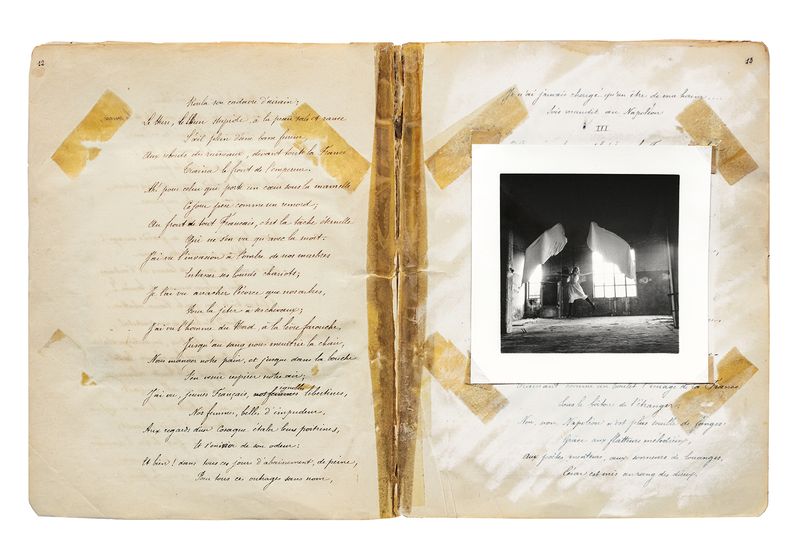 12
Voila son cadavre d'airain;
Le Hun, le Hun stupide, à la peau sale et rance
L'œil plein d'une
Aux rebords des ruisseaux, devant toute la France
Traina le front de l'empereur.
Ah! pour celui qui porte un cœur sous la mamelle
Ce jour pèse comme un remord;
Au front de tout Français, c'est la tache éternelle
Qui ne s'en va qu'avec la mort.
J'ai vu l'invasion à l'ombre de nos marbres
Entasser ses lourds chariots;
Je l'ai vu arracher l'écorce nos arbres,
Pour la jeter à ses chevaux;
J'ai vu l'homme du Nord, à la lèvre farouche,
Jusqu'au sang nous meurtrir la chair,
Nous manger notre pain, et jusque dans la bouche
S'en venir respirer notre air;
J'ai vu, jeunes Français, ignobles libertines,
Nos femmes, belles d'impudeur,
Aux regards d'un Cosaque étaler leurs poitrines,
Et s'enivrer de son odeur:
Eh bien! dans tous ces jours d'abaissement, de peine,
Pour tous ces outrages sans nom,
13
Je n'ai jamais chargé qu'un être de ma haine....
Sois maudit ô Napoléon
III
comme un boulet l'image de la France
Sous le bâton de l'étranger;
Non, non Napoléon n'est plus souillé de fanges:
Grâce aux flatteurs mélodieux,
Aux poètes menteurs, aux sonneurs de louanges,
César est mis au rang des dieux.